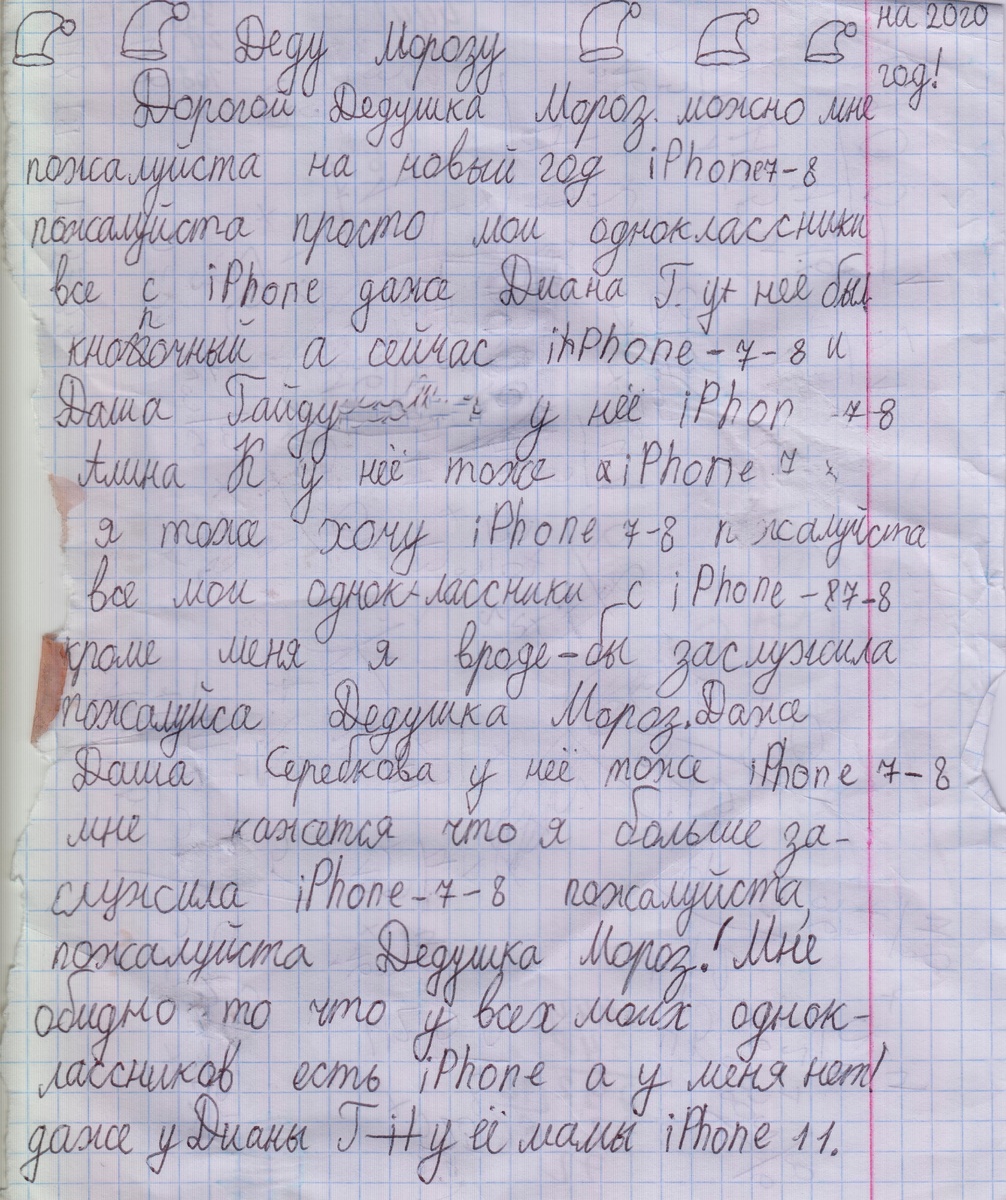 на 2020
Деду Морозу
год!
Дорогой Дедушка Мороз. можно мне
пожалуйста на новый год iPhone7-8
пожалуйста просто мои одноклассники
все с iPhone даже Диана Г. у неё был
кнопочный а сейчас iPhone-7-8 и
Даша Гайду у неё iPhon 7-8
Алина К у неё тоже iPhone 7
я тоже хочу iPhone 7-8 п жалуйста
все мои однок-лассники с iPhone-87-8
кроме меня я вроде-бы заслужила
пожалуйса Дедушка Мороз. Даже
Даша Серебкова у неё тоже iPhone 7-8
мне кажется что я больше за-
служила iPhone-7-8 пожалуйста,
пожалуйста Дедушка Мороз! Мне
обидно то что у всех моих однок-
лассников есть iPhone а у меня нет!
даже у Дианы Г у её мамы iPhone 11.